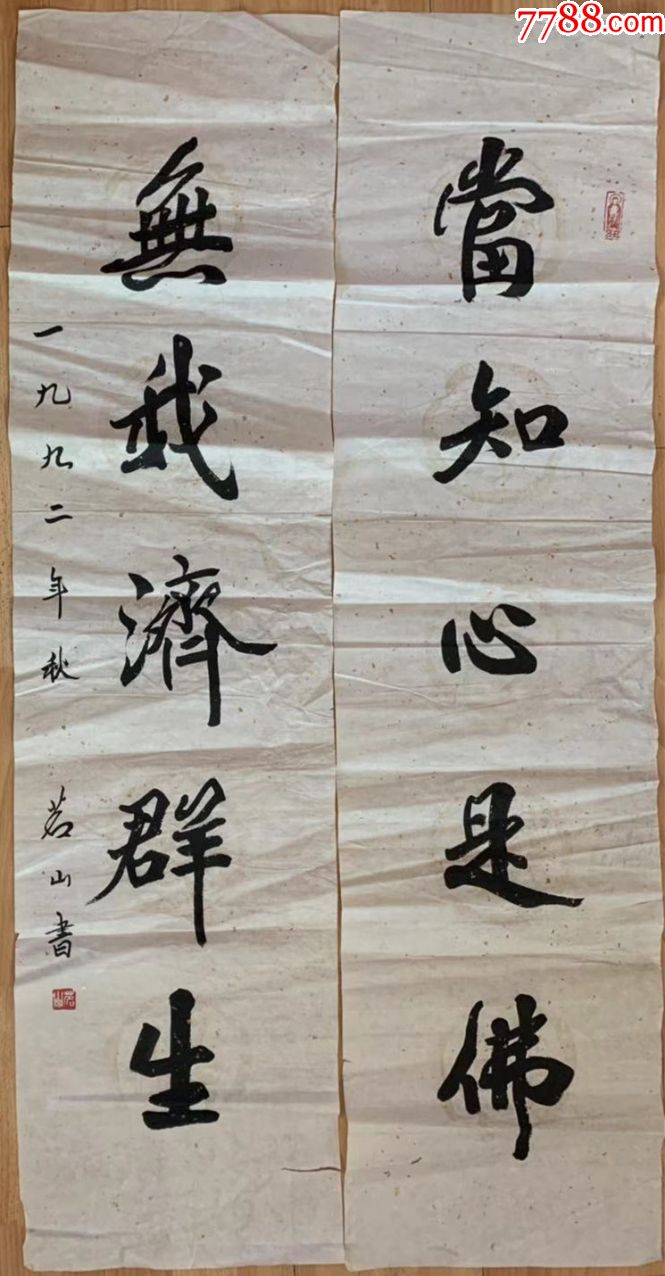 7788.com
當知心是佛
無我濟群生
一九九二年秋
茗山書
茗山